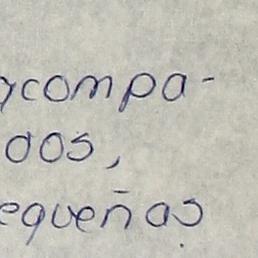 acompa-
dos,
equeñas